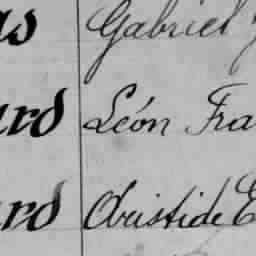 as Gabriel
ard Léon Fra
ard Aristide E